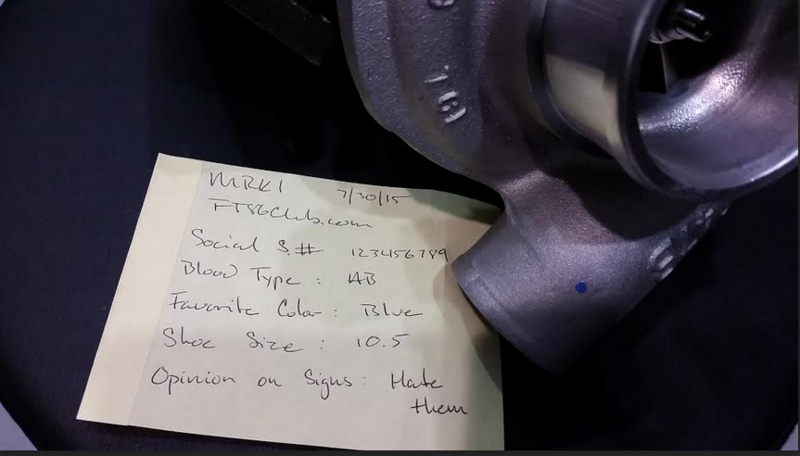 MRK1 7/30/15
FT86Club.com
Social S.# 123456789
Blood Type : AB
Favorite Color : Blue
Shoe Size : 10.5
Opinion on Signs : Hate
them